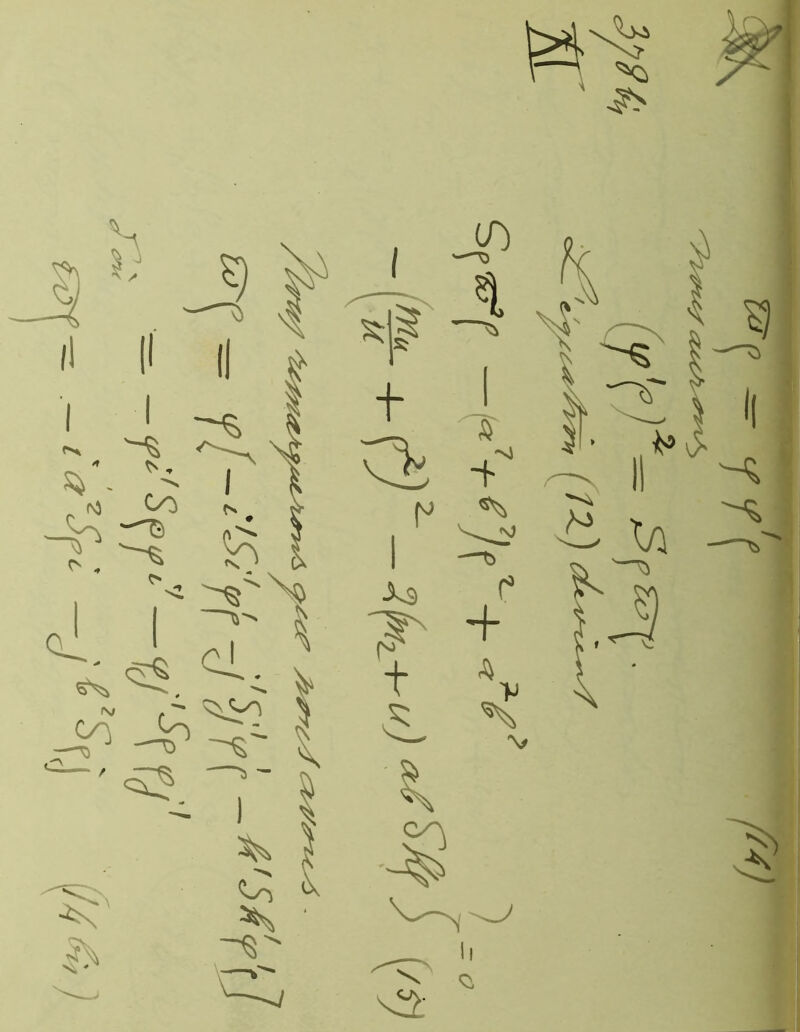 378 bis
XI
ϖρ = φφ'ρ (14)
nous aurons
(φ'ρ)² = Sρϖρ.
L'équation (12) devient
Sρϖ²ρ − (a² + b²)ρ² + a²b²
− (m₄/u + ρ²)² − 2(m₂ + u) ab Skρ } = 0 (15)
Nous remarquerons que nous avons.
ϖρ = φ[−i'Si'φ'ρ − j'Sj'φ'ρ − k'Sk'φ'ρ]
= −φi'Sρφi' − φj'Sρφj'
d'où
ϖρ = −ia²Sρi − jb²Sρj (14 bis)